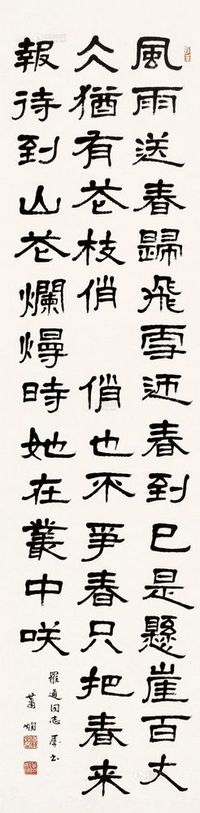 風雨送春歸飛雪迎春到已是懸崖百丈
仌猶有花枝俏 俏也不爭春只把春来
報待到山花爛熳時她在叢中咲
羅通同志属书
蕭嫻